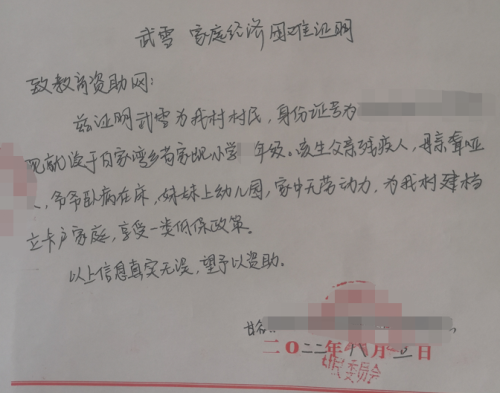 武雪 家庭经济困难证明
致教育资助网:
兹证明武雪为我村村民,身份证号为
现就读于白家湾乡 小学 年级。该生父亲残疾人,母亲聋哑
人,爷爷卧病在床,妹妹上幼儿园,家中无劳动力,为我村建档
立卡户家庭,享受一类低保政策。
以上信息真实无误,望予以资助。
二〇二二年 月 日
村民委员会